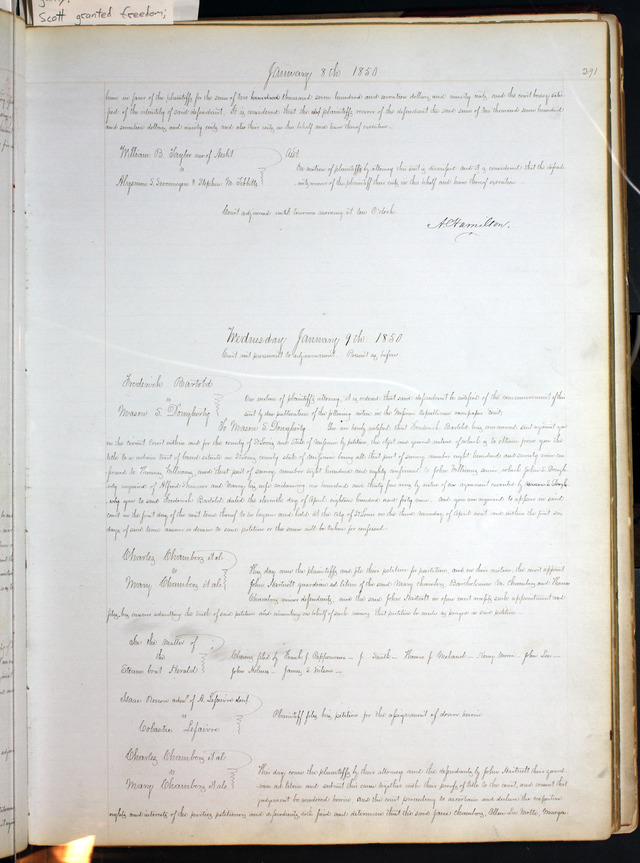 Scott granted freedom;
January 8th 1850
291
have in favor of the plaintiffs for the sum of two hundred thousand seven hundred and seventeen dollars and ninety cents, and the court being satis-
fied of the identity of said defendant. It is considered that the plaintiffs recover of the defendant the said sum of two thousand seven hundred
and seventeen dollars and ninety cents and also their costs in this behalf and have thereof execution.
William B. Taylor use of
vs
Stephen M. Tibbitts
On motion of plaintiffs by attorney this suit is dismissed and it is considered that the defend-
ants recover of the plaintiff their costs in this behalf and have thereof execution
Court adjourned until tomorrow morning at ten O'clock
A. Hamilton.
Wednesday January 9th 1850
Court met pursuant to adjournment. Present as before
Frederick Bartold
vs
Mason S. Dougherty
On motion of plaintiffs attorney, it is ordered that said defendant be notified of the commencement of this
suit by due publication of the following notice in the Missouri Republican newspaper towit;
To Mason S. Dougherty. You are hereby notified that Frederick Bartold has commenced suit against you
in the circuit court within and for the county of St Louis and State of Missouri by petition, the object and general nature of which is to obtain from you the
title to a certain tract of land situate in St Louis county state of Missouri being all that part of survey number eight hundred and seventy nine con-
firmed to Thomas Williams, and that part of survey number eight hundred and eighty confirmed to John Williams senior, which John S. Dough-
erty acquired of Alfred and Nancy his wife containing one hundred and thirty four acres by virtue of an agreement executed by
you to said Frederick Bartold dated the eleventh day of April eighteen hundred and forty nine. and you are required to appear in said
court on the first day of the next term thereof to be begun and held at the City of St Louis on the third monday of April next and within the first six
days of said term answer or demur to said petition or the same will be taken for confessed.
Charles Chambers et als
vs
Mary Chambers et als
This day came the plaintiffs and file their petition for partition, and on their motion, the court appoint
John guardian ad litem of the said Mary Chambers, Bartholomew M. Chambers and Thomas
Chambers minor defendants, and the said John in open court accepts such appointment and
files his answer admitting the truth of said petition and consenting on behalf of said minors that partition be made as prayed in said petition.
In the matter of
the
Steam boat Herald
Claims filed by Frank J. – J. Smith – Thomas J. – Henry – John Lee –
John Holmes – James S. Wilson –
Isaac adm'r of A. Lefaivre dec'd
vs
Celastie Lefaivre
Plaintiff files his petition for the assignment of dower herein
Charles Chambers et als
vs
Mary Chambers et als
This day come the plaintiffs by their attorney and the defendants by John their guard-
ian ad litem and submit this cause together with their proofs of title to the court, and consent that
judgement be rendered herein. And the court proceeding to ascertain and declare the respective
rights and interests of the parties, petitioners and defendants, doth find and determine that the said Jane Chambers,